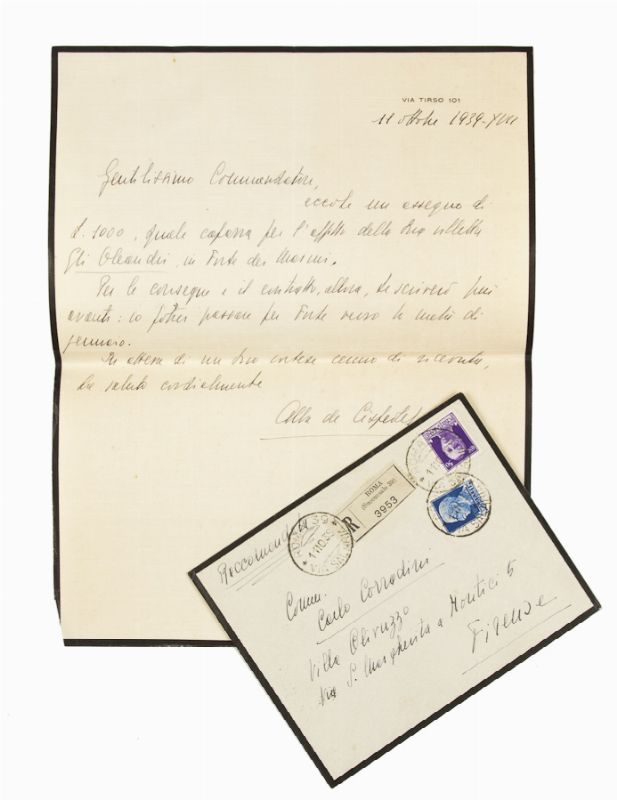 VIA TIRSO 101
11 ottobre 1939-XVII
Gentilissimo Commendatore,
eccole un assegno di
£. 1000, quale caparra per l'affitto della Sua villetta
Gli Oleandri, in Forte dei Marmi.
Per le consegne e il contratto, allora, Le scriverò più
avanti: io potrei passare per Forte verso la metà di
gennaio.
In attesa di un Suo cortese cenno di ricevuta,
La saluto cordialmente
Alba de Céspedes
Raccomandata
R
ROMA
(Succursale 39)
3953
Comm.
Carlo Corradini
Villa Olivuzzo
Via S. Margherita a Montici 5
Firenze